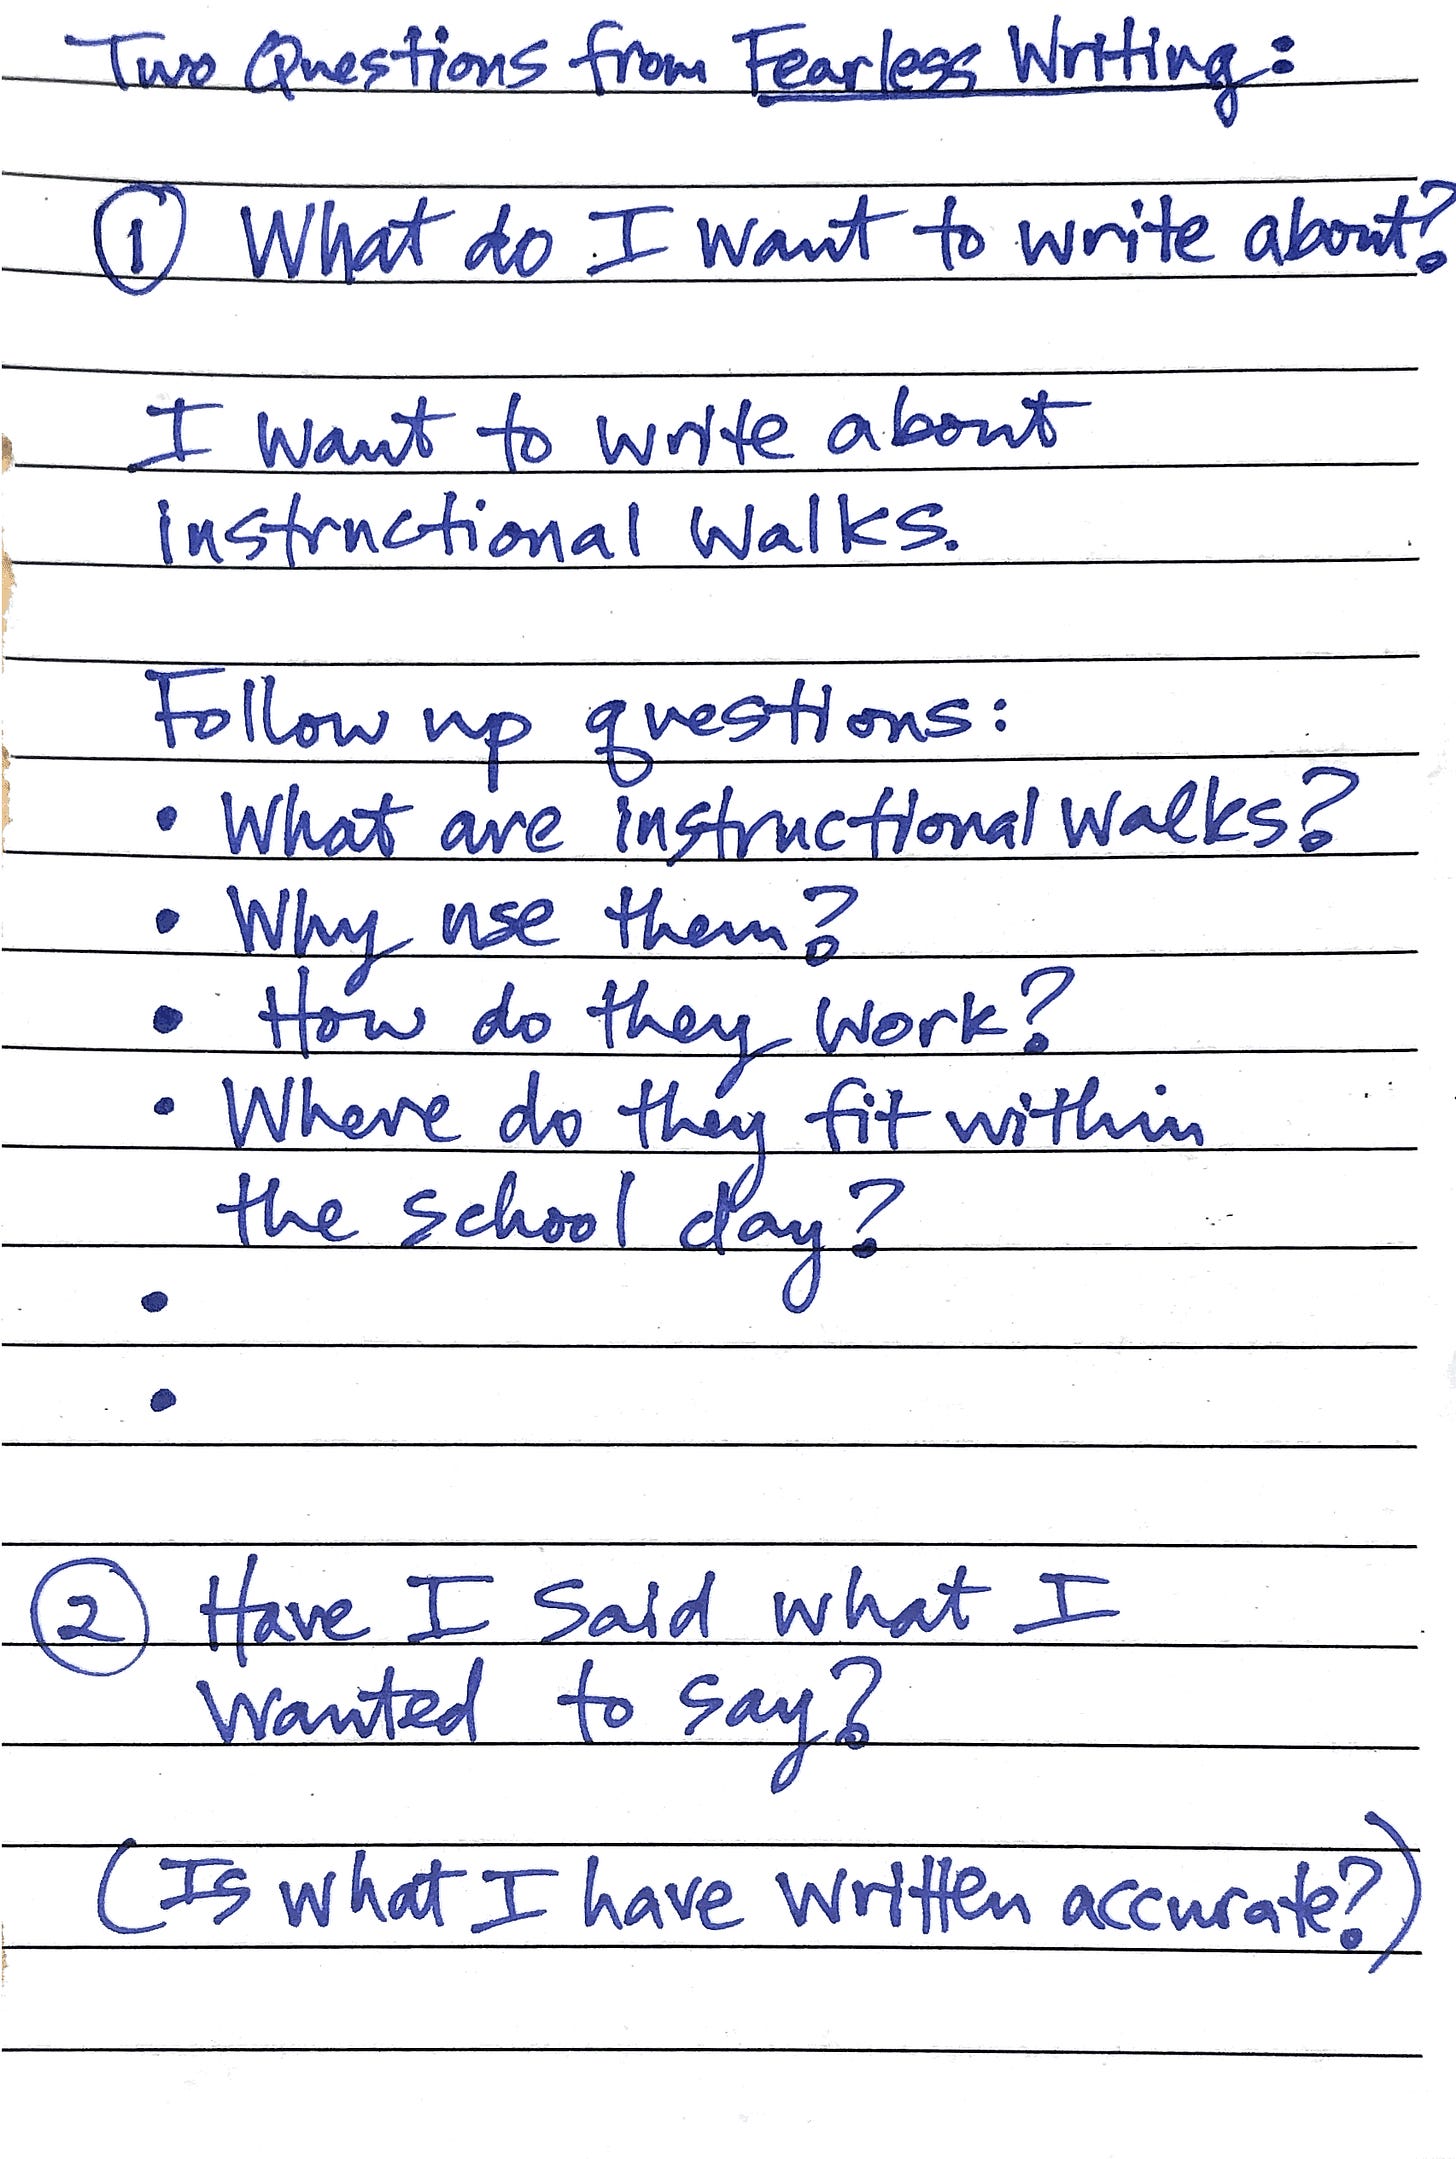 Two Questions from Fearless Writing:
① What do I want to write about?
I want to write about
instructional walks.
Follow up questions:
• What are instructional walks?
• Why use them?
• How do they work?
• Where do they fit within
the school day?
•
•
② Have I said what I
wanted to say?
(Is what I have written accurate?)